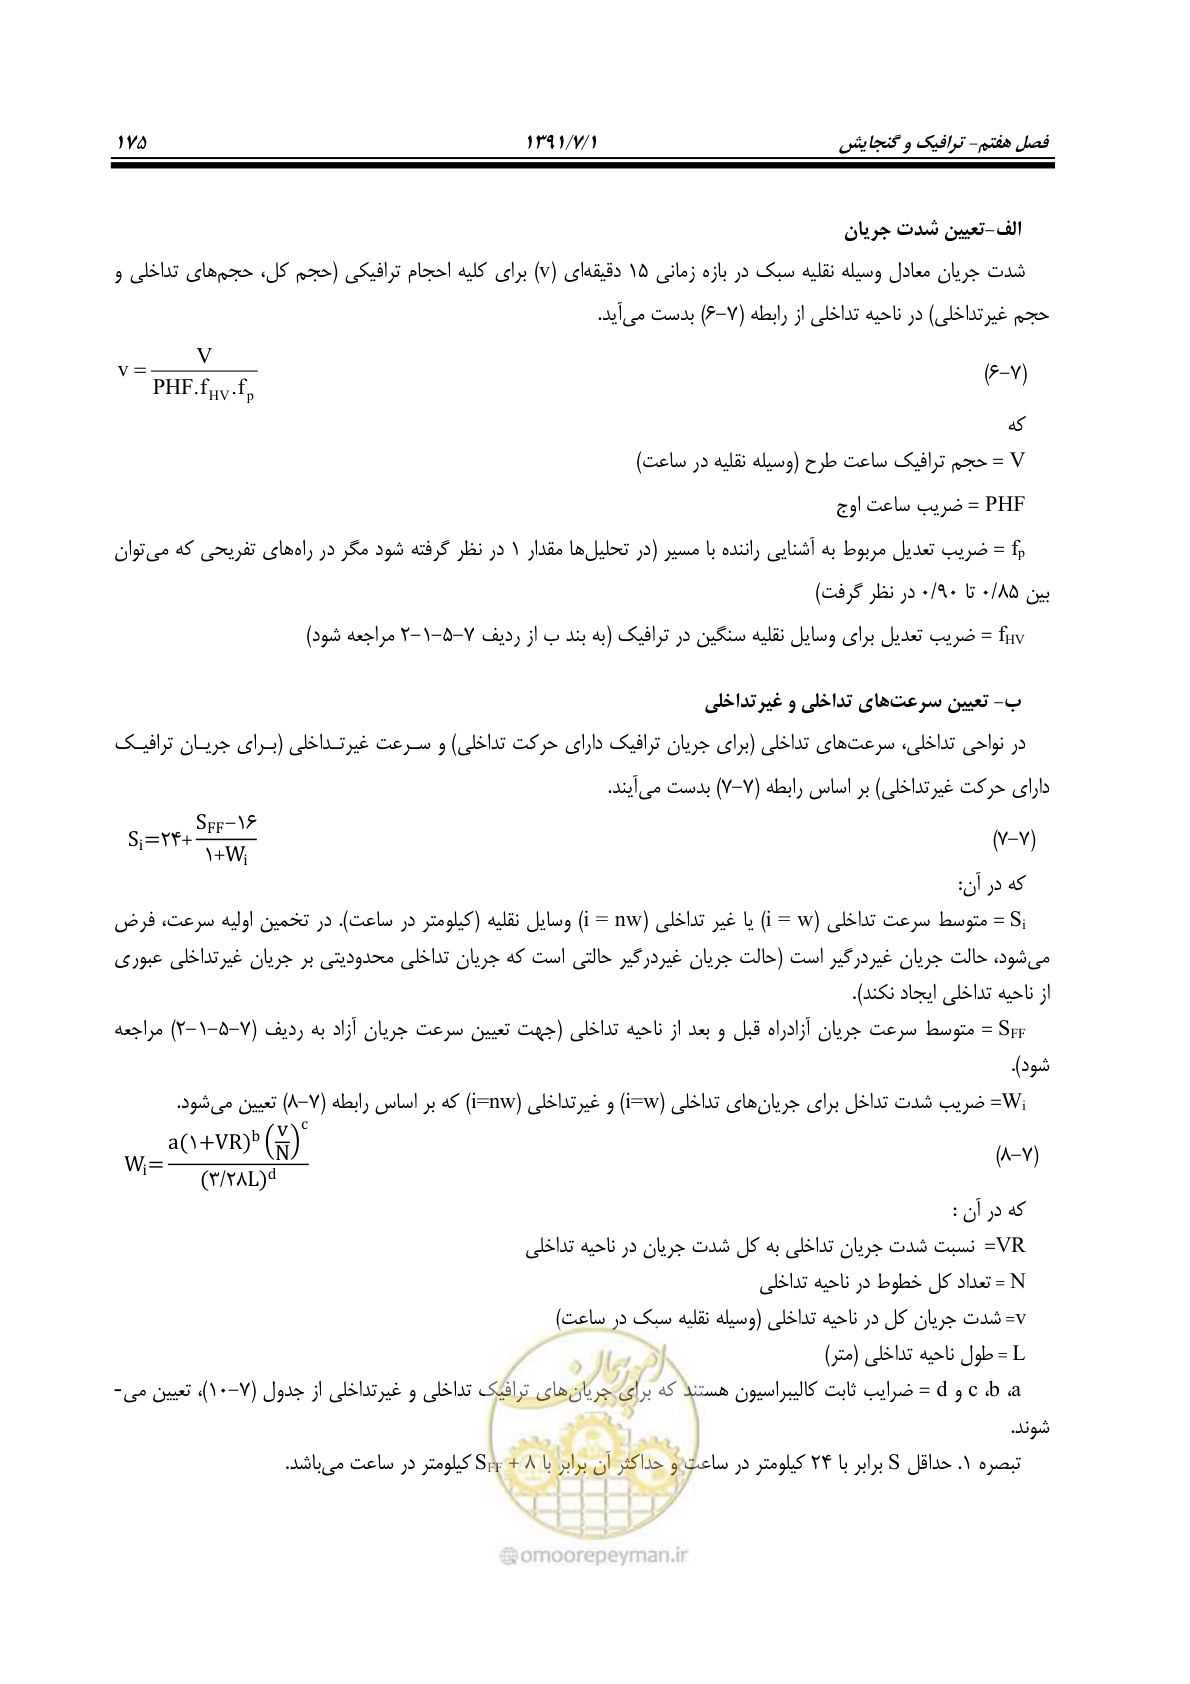 فصل هفتم- ترافیک و گنجایش ۱۳۹۱/۷/۱ ۱۷۵
الف-تعیین شدت جریان
شدت جریان معادل وسیله نقلیه سبک در بازه زمانی ۱۵ دقیقه‌ای (v) برای کلیه احجام ترافیکی (حجم کل، حجم‌های تداخلی و
حجم غیرتداخلی) در ناحیه تداخلی از رابطه (۷-۶) بدست می‌آید.
(۷-۶) v = V / PHF.f_HV.f_p
که
V = حجم ترافیک ساعت طرح (وسیله نقلیه در ساعت)
PHF = ضریب ساعت اوج
f_p = ضریب تعدیل مربوط به آشنایی راننده با مسیر (در تحلیل‌ها مقدار ۱ در نظر گرفته شود مگر در راه‌های تفریحی که می‌توان
بین ۰/۸۵ تا ۰/۹۰ در نظر گرفت)
f_HV = ضریب تعدیل برای وسایل نقلیه سنگین در ترافیک (به بند ب از ردیف ۷-۵-۱-۲ مراجعه شود)
ب- تعیین سرعت‌های تداخلی و غیرتداخلی
در نواحی تداخلی، سرعت‌های تداخلی (برای جریان ترافیک دارای حرکت تداخلی) و سـرعت غیرتـداخلی (بـرای جریـان ترافیـک
دارای حرکت غیرتداخلی) بر اساس رابطه (۷-۷) بدست می‌آیند.
(۷-۷) S_i=۲۴+ (S_FF−۱۶) / (۱+W_i)
که در آن:
S_i = متوسط سرعت تداخلی (i = w) یا غیر تداخلی (i = nw) وسایل نقلیه (کیلومتر در ساعت). در تخمین اولیه سرعت، فرض
می‌شود، حالت جریان غیردرگیر است (حالت جریان غیردرگیر حالتی است که جریان تداخلی محدودیتی بر جریان غیرتداخلی عبوری
از ناحیه تداخلی ایجاد نکند).
S_FF = متوسط سرعت جریان آزادراه قبل و بعد از ناحیه تداخلی (جهت تعیین سرعت جریان آزاد به ردیف (۷-۵-۱-۲) مراجعه
شود).
W_i= ضریب شدت تداخل برای جریان‌های تداخلی (i=w) و غیرتداخلی (i=nw) که بر اساس رابطه (۷-۸) تعیین می‌شود.
(۷-۸) W_i= a(۱+VR)^b (v/N)^c / (۳/۲۸L)^d
که در آن :
VR= نسبت شدت جریان تداخلی به کل شدت جریان در ناحیه تداخلی
N = تعداد کل خطوط در ناحیه تداخلی
v= شدت جریان کل در ناحیه تداخلی (وسیله نقلیه سبک در ساعت)
L = طول ناحیه تداخلی (متر)
a، b، c و d = ضرایب ثابت کالیبراسیون هستند که برای جریان‌های ترافیک تداخلی و غیرتداخلی از جدول (۷-۱۰)، تعیین می-
شوند.
تبصره ۱. حداقل S برابر با ۲۴ کیلومتر در ساعت و حداکثر آن برابر با S_FF + ۸ کیلومتر در ساعت می‌باشد.
امور پیمان
@omoorepeyman.ir